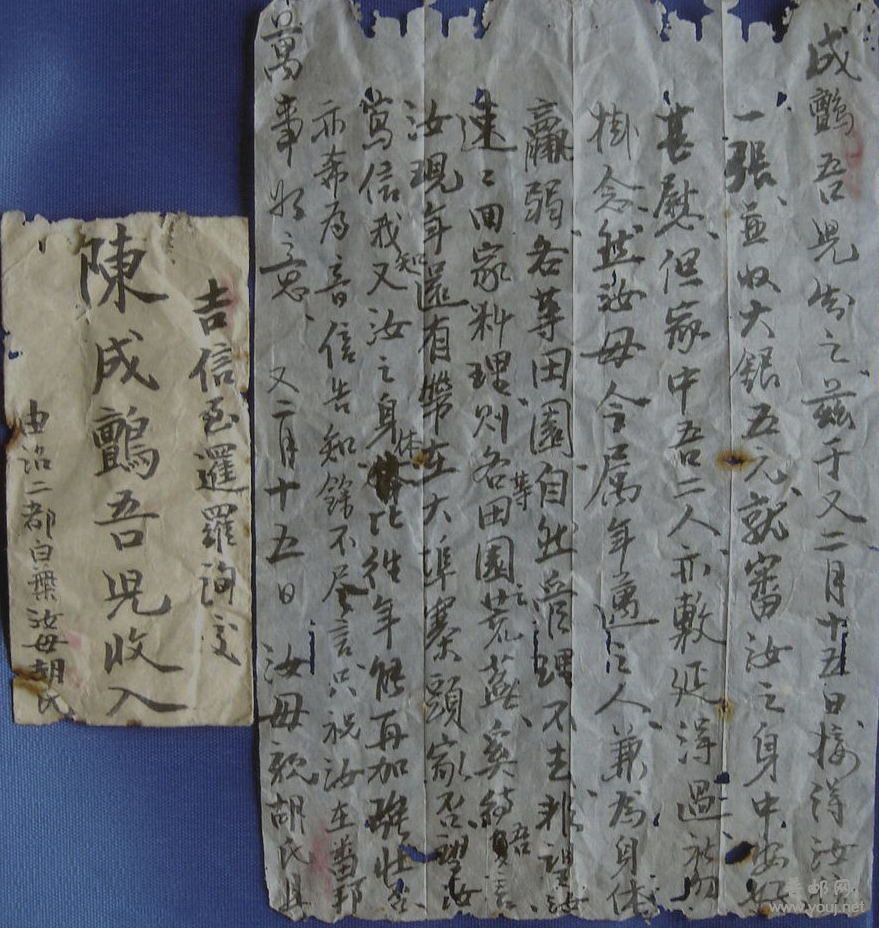 成鸇吾兒知之茲于又二月十五日接得汝信
一張並收大銀五元就審汝之身中安好
甚慰但家中吾二人亦敷延得過祈勿
掛念然汝母今属年邁之人兼為身体
羸弱各等田園等自然管理不去非望汝
速々回家料理則各田園之荒蕪奚待吾言
汝現年還有帶在大埠寨頭家否望汝
寫信我知又汝之身体比往年能再加強壯否
亦希為音信告知餘不尽言只祝汝在番邦
萬事如意 又二月十五日 汝母親胡氏具
吉信至暹羅詢交
陳成鸇吾兒收入
由詔二都白葉汝母胡氏
www.youj.net